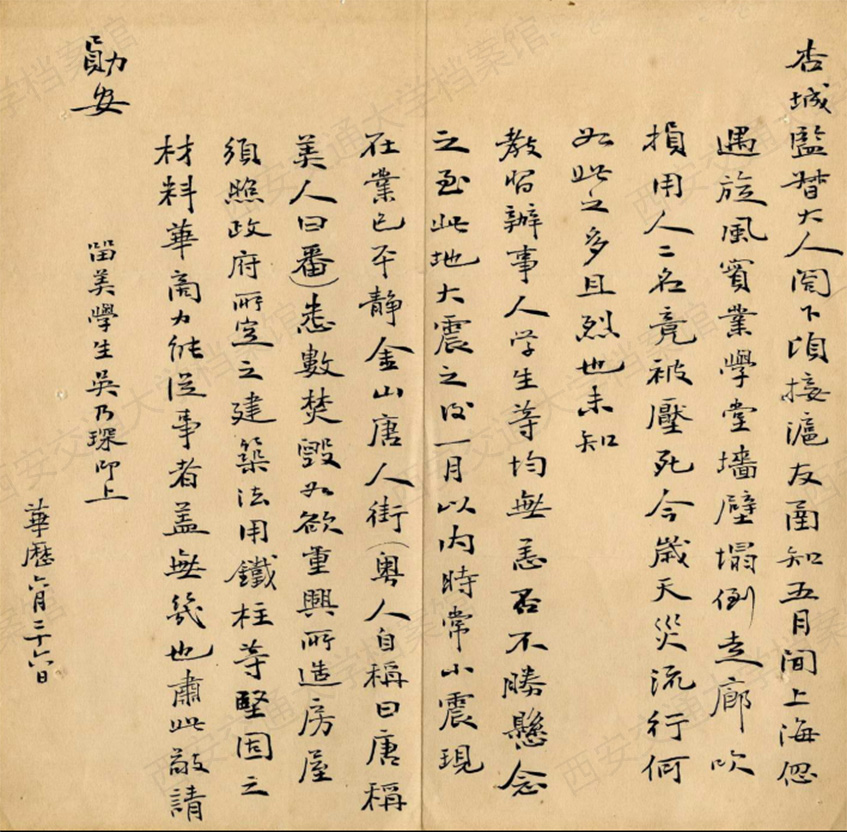 杏城監督大人閣下頃接滬友函知五月間上海忽
遇旋風實業學堂墻壁塌倒走廊吹
損用人二名竟被壓死今歲天災流行何
如此之多且烈也未知
教習辦事人学生等均無恙否不勝懸念
之至此地大震之後一月以內時常小震現
在業已平靜金山唐人街(粵人自稱曰唐稱
美人曰番)悉數焚毀如欲重興所造房屋
須照政府所定之建築法用鐵柱等堅固之
材料華商力能從事者蓋無幾也肅此敬請
勛安
留美學生吳乃琛叩上
華曆六月二十六日
西安交通大学档案馆